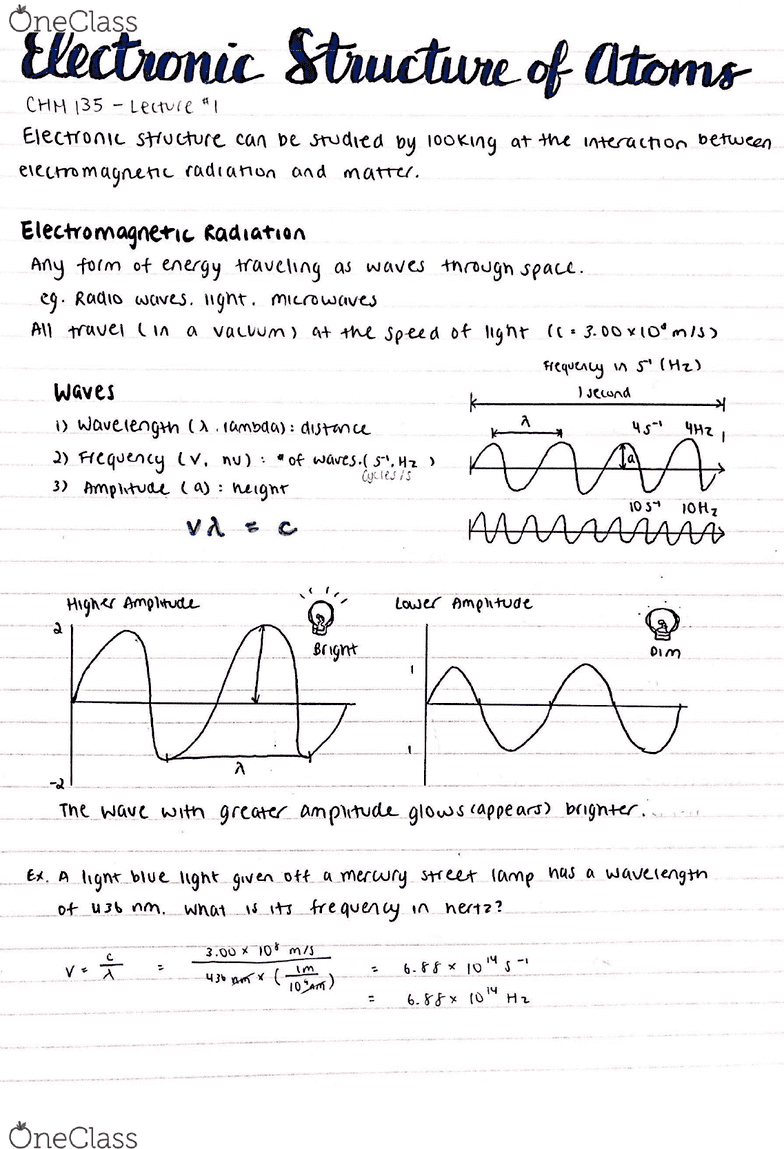 OneClass
Electronic Structure of Atoms
CHM 135 - Lecture #1
Electronic structure can be studied by looking at the interaction between
electromagnetic radiation and matter.
Electromagnetic Radiation
Any form of energy traveling as waves through space.
eg. Radio waves, light, microwaves
All travel (in a vacuum) at the speed of light (c = 3.00 × 10⁸ m/s)
Frequency in s⁻¹ (Hz)
1 second
Waves
1) Wavelength (λ, lambda): distance
λ
4 s⁻¹ 4 Hz
2) Frequency (ν, nu): # of waves. (s⁻¹, Hz)
cycles/s
a
3) Amplitude (a): height
10 s⁻¹ 10 Hz
νλ = c
Higher Amplitude
Lower Amplitude
2
Bright
Dim
1
1
λ
-2
The wave with greater amplitude glows (appears) brighter.
Ex. A light blue light given off a mercury street lamp has a wavelength
of 436 nm. What is its frequency in hertz?
ν = c/λ = 3.00 × 10⁸ m/s / 436 nm × (1m / 10⁹ nm) = 6.88 × 10¹⁴ s⁻¹
= 6.88 × 10¹⁴ Hz
OneClass